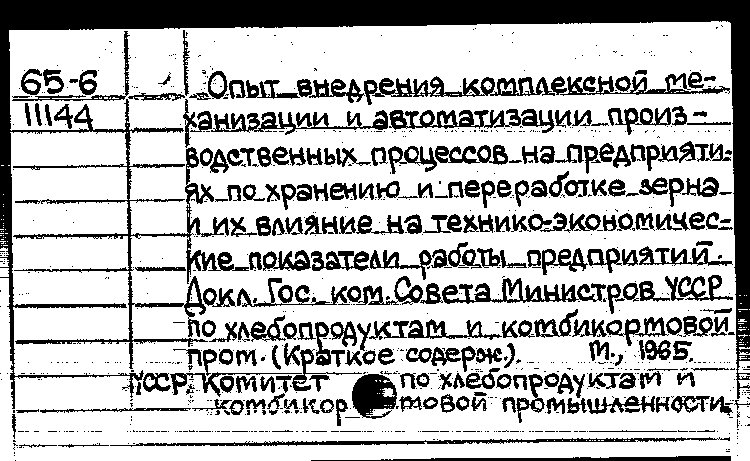 65-6 Опыт внедрения комплексной ме-
11144 ханизации и автоматизации произ-
водственных процессов на предприяти-
ях по хранению и переработке зерна
и их влияние на технико-экономичес-
кие показатели работы предприятий.
Докл. Гос. ком. Совета Министров УССР
по хлебопродуктам и комбикормовой
пром. (Краткое содерж.). М., 1965.
УССР. Комитет по хлебопродуктам и
комбикормовой промышленности.